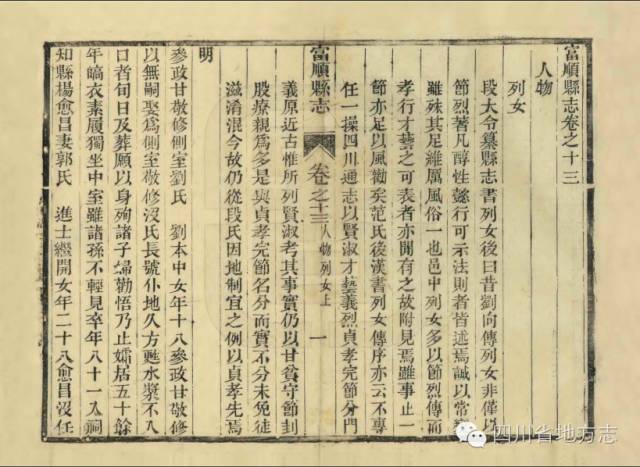 富順縣志卷之十三
人物
列女
段大令纂縣志書列女後曰昔劉向傳列女非僅以
節烈著凡醇性懿行可示法則者皆述焉誠以常變
雖殊其足維厲風俗一也邑中列女多以節烈傳而
孝行才藝之可表者亦間有之故附見焉雖事止一
節亦足以風勸矣范氏後漢書列女傳序亦云不專
任一操四川通志以賢淑才藝義烈貞孝完節分門
富順縣志
卷之十三
人物列女上
一
義原近古惟所列賢淑考其事實仍以甘貧守節刲
股療親爲多是與貞孝完節名分而實不分未免徒
滋淆混今故仍從段氏因地制宜之例以貞孝先焉
明
參政甘敬修側室劉氏
劉本中女年十八參政甘敬修
以無嗣娶爲側室敬修沒氏長號仆地久方甦水漿不入
口者旬日及葬願以身殉諸子婦勸悟乃止孀居五十餘
年縞衣素履獨坐中室雖諸孫不輕見卒年八十一入祠
知縣楊愈昌妻郭氏
進士繼開女年二十八愈昌沒任
四川省地方志